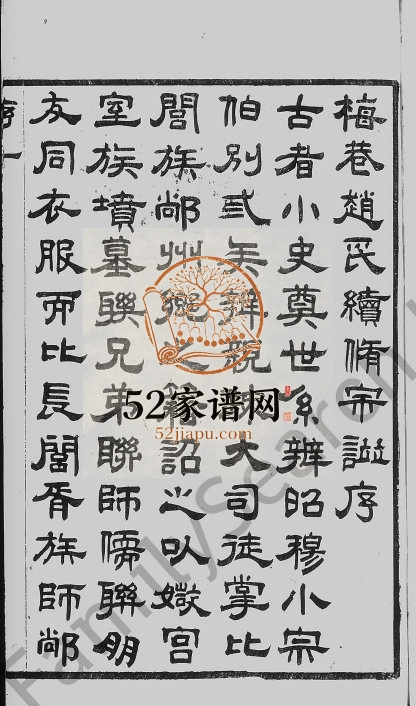 梅巷趙氏續脩宗譜序
古者小史奠世系辨昭穆小宗
伯別弎辨親大司徒掌比
閭族䣊州鄉之詔之以媺宮
室族墳墓聯兄弟聯師儒聯朋
友同衣服而比長閭胥族師䣊
52家谱网
52jiapu.com
FamilySearch